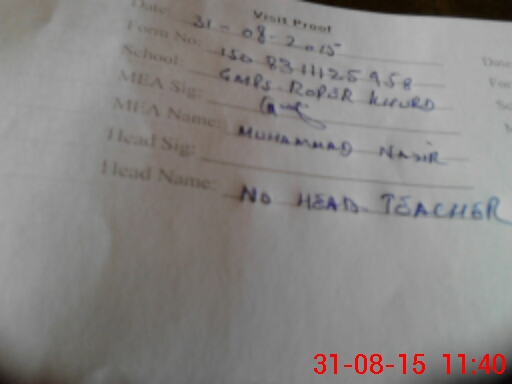 Visit Proof
Date: 31-08-2015
Form No: 150 8311125958
School: GMPS ROPAR KHURD
MEA Sig:
MEA Name: MUHAMMAD NASIR
Head Sig:
Head Name: NO HEAD TEACHER
Date
For
31-08-15 11:40